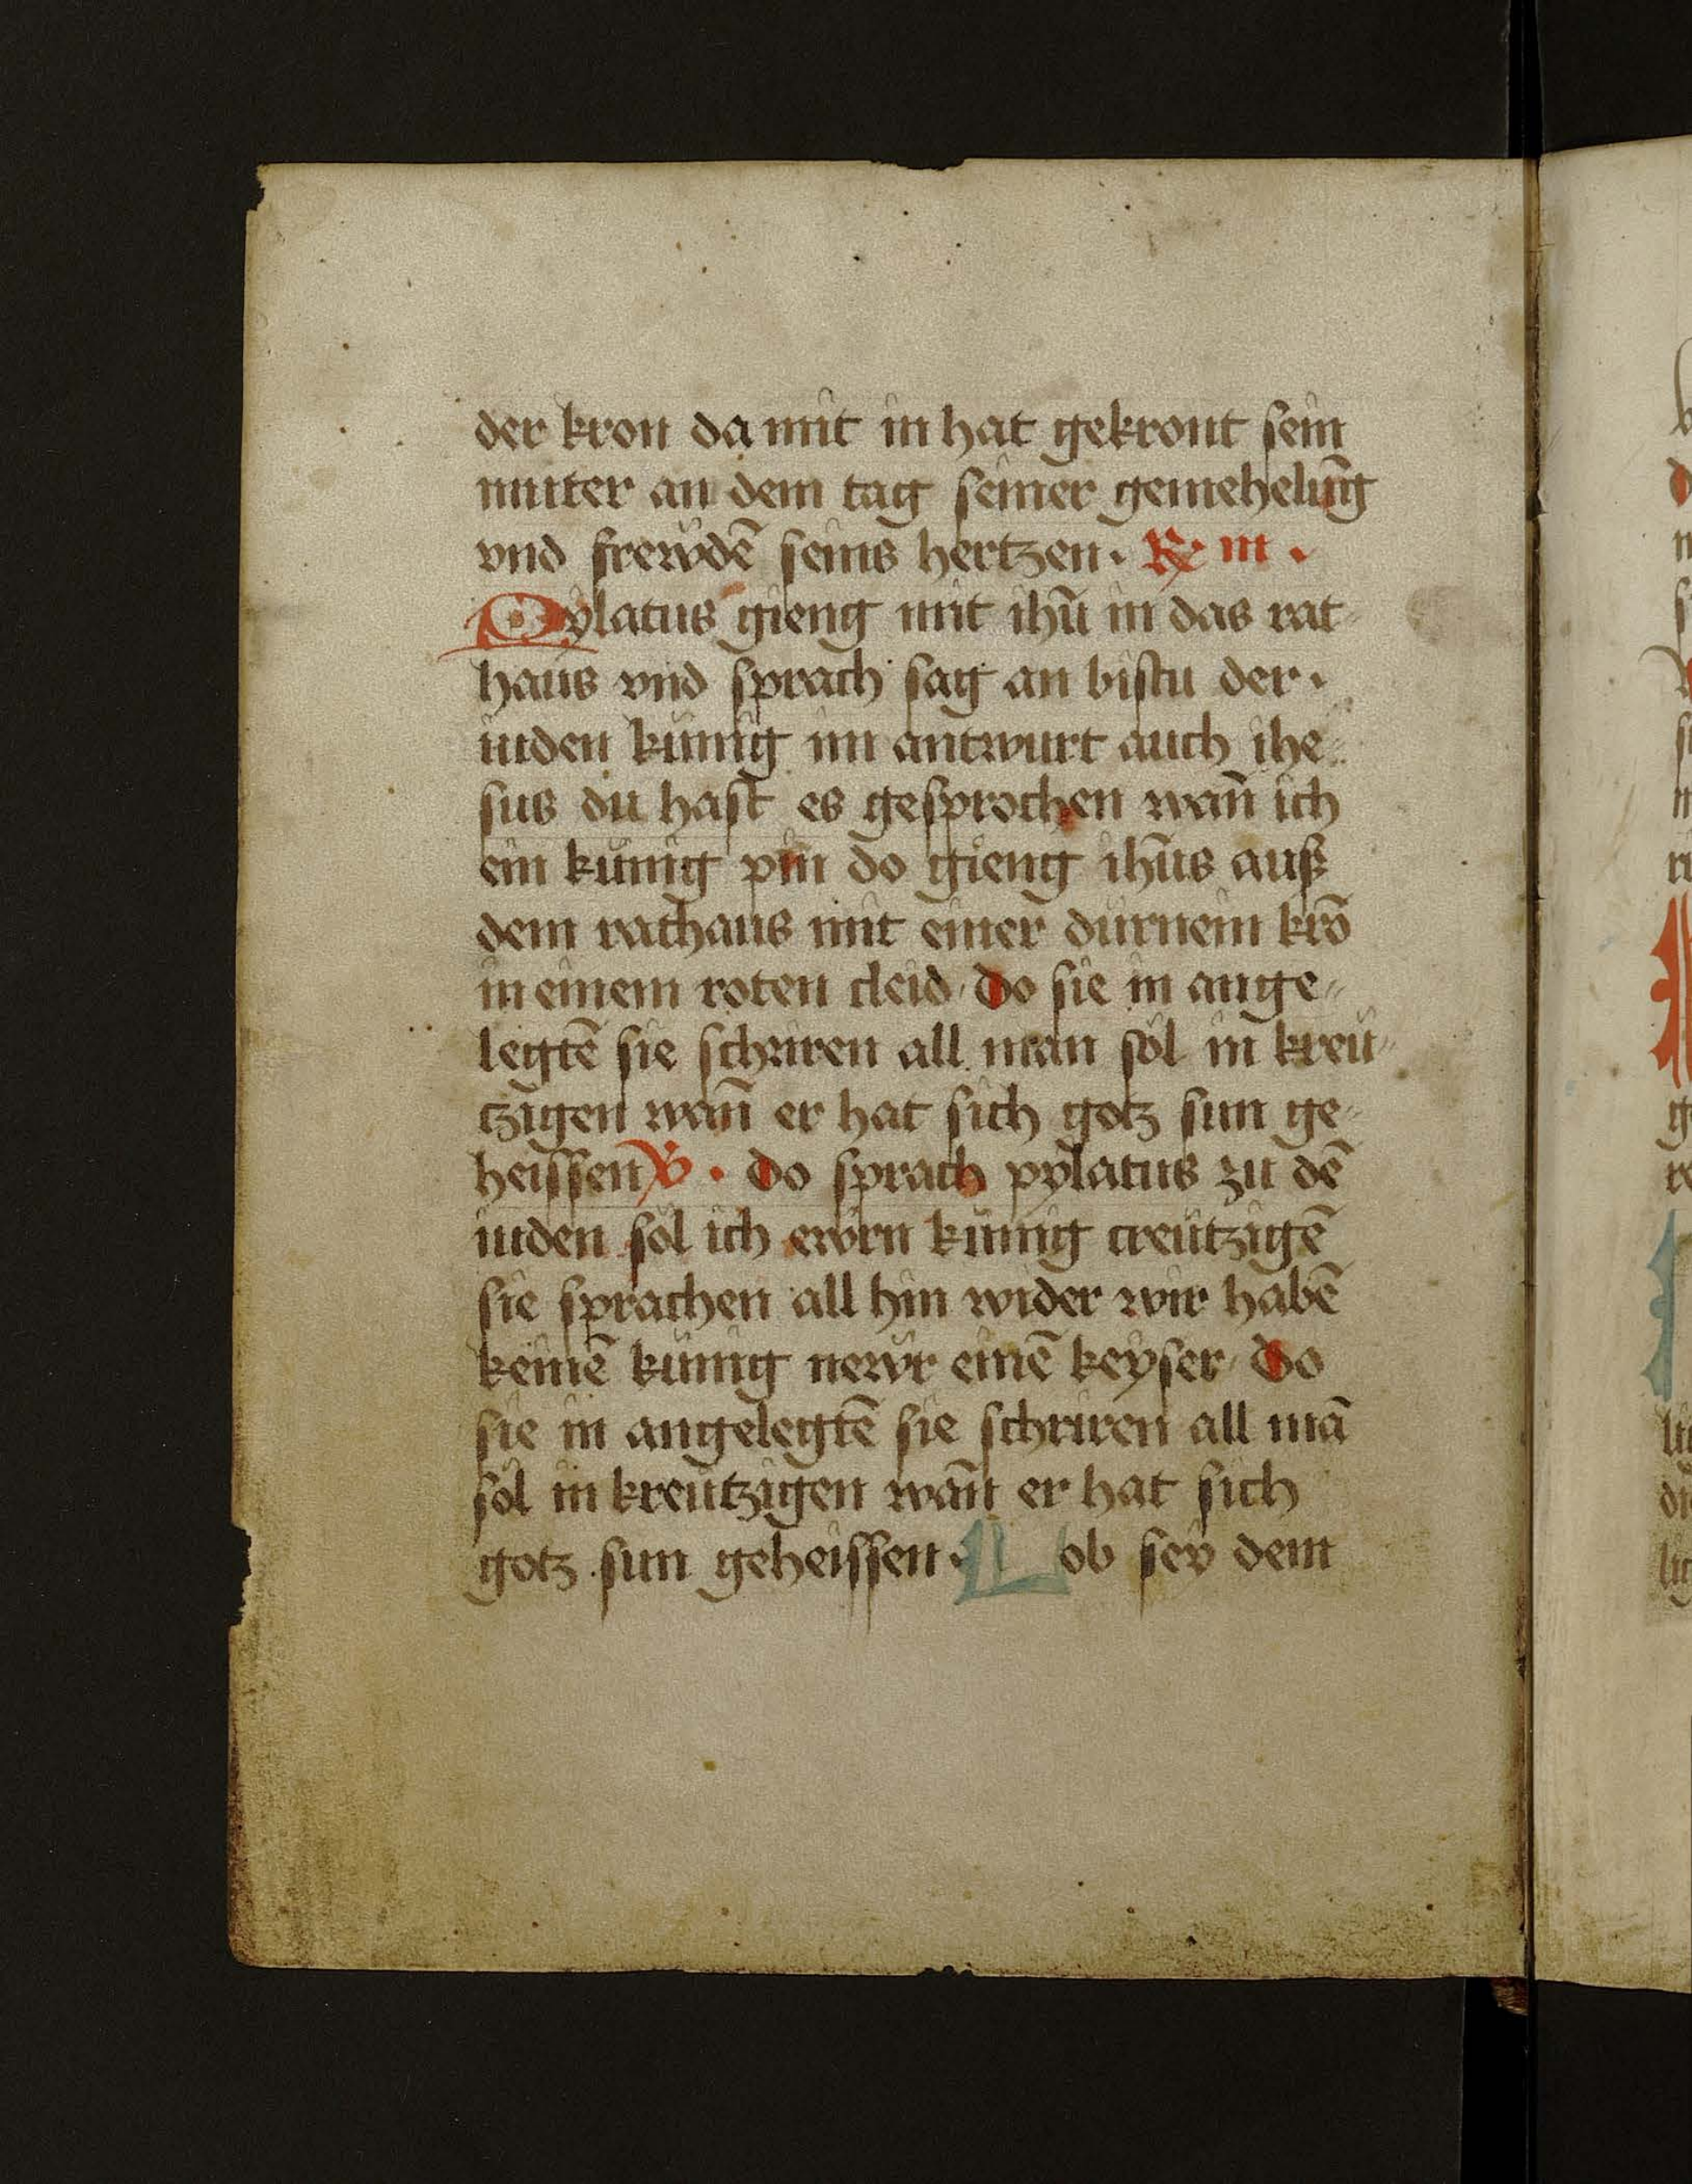 der kron da mit in hat gekront sein
muter an dem tag seiner gemehelūg
vnd frewdē seins hertzen · ℟ iii ·
Pylatus gieng mit ihū in das rat
haus vnd sprach sag an bistu der ·
iuden künig im antwurt auch ihe
sus du hast es gesprochen wañ ich
ein künig pin do gieng ihūs auß
dem rathaus mit einer durnein krō
in einem roten cleid do sie in ange
legtē sie schriren all man sol in kreu
tzigen wañ er hat sich gotz sun ge
heissen ℣ · Do sprach pylatus zu dē
iuden sol ich ewrn künig creutzigē
sie sprachen all hin wider wir habē
keinē künig newr einē keyser Do
sie in angelegtē sie schriren all mā
sol in kreutzigen wañ er hat sich
gotz sun geheissen · Lob sey dem